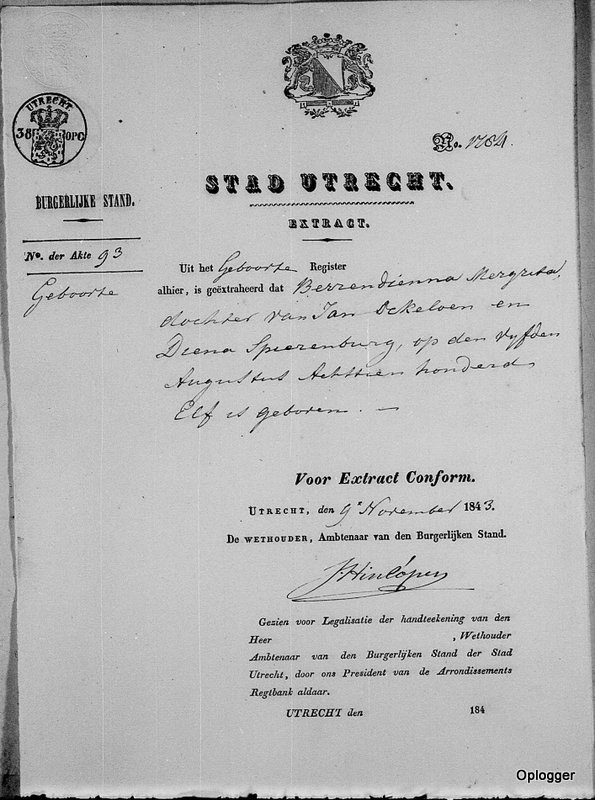 UTRECHT
38 OPC
No. 1784
BURGERLIJKE STAND.
STAD UTRECHT.
EXTRACT.
No. der Akte 93
Geboorte
Uit het Geboorte Register
alhier, is geëxtraheerd dat Berrendienna Mergrita,
dochter van Jan Ockeloen en
Diena Spierenburg, op den vyfden
Augustus Achttien honderd
Elf is geboren. —
Voor Extract Conform.
UTRECHT, den 9e November 1843.
De WETHOUDER, Ambtenaar van den Burgerlijken Stand.
J. Hinlópen
Gezien voor Legalisatie der handteekening van den
Heer , Wethouder
Ambtenaar van den Burgerlijken Stand der Stad
Utrecht, door ons President van de Arrondissements
Regtbank aldaar.
UTRECHT den 184
Oplogger